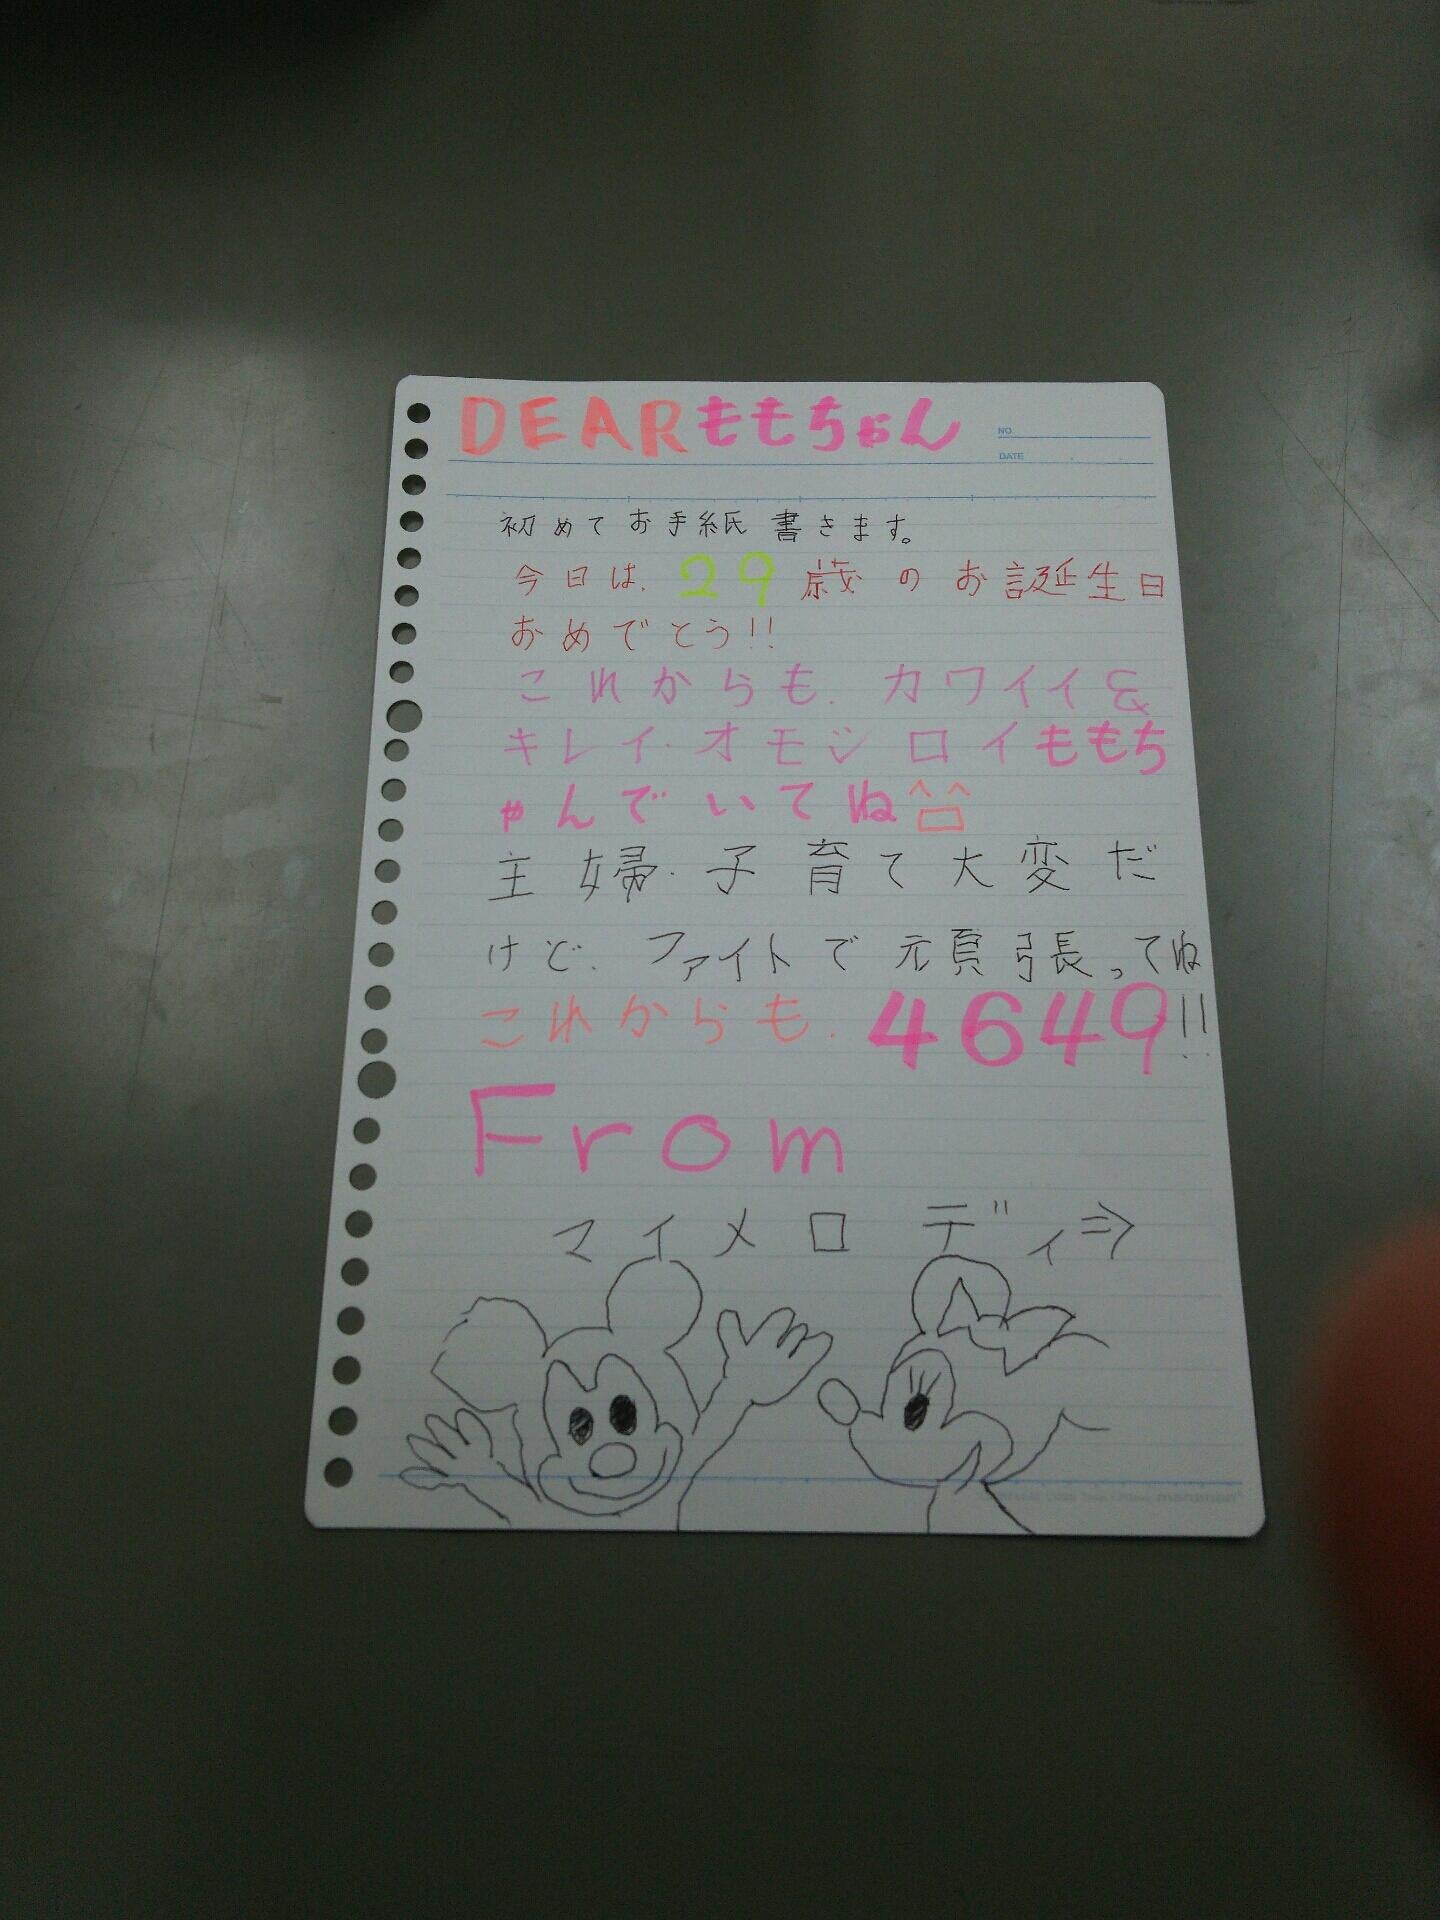 DEARももちゃん
NO.
DATE
初めてお手紙書きます。
今日は、29歳のお誕生日
おめでとう!!
これからも、カワイイ&
キレイ・オモシロイももち
ゃんでいてね^^
主婦・子育て大変だ
けど、ファイトで頑張ってね
これからも、4649!!
From
マイメロディ⇒